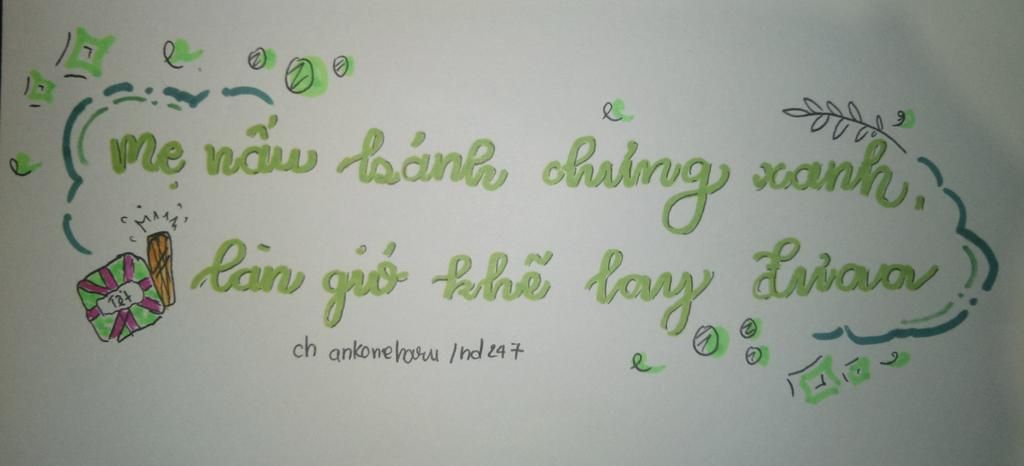 Mẹ nấu bánh chưng xanh,
làn gió khẽ lay đưaa
127
ch ankoneharu /nd247